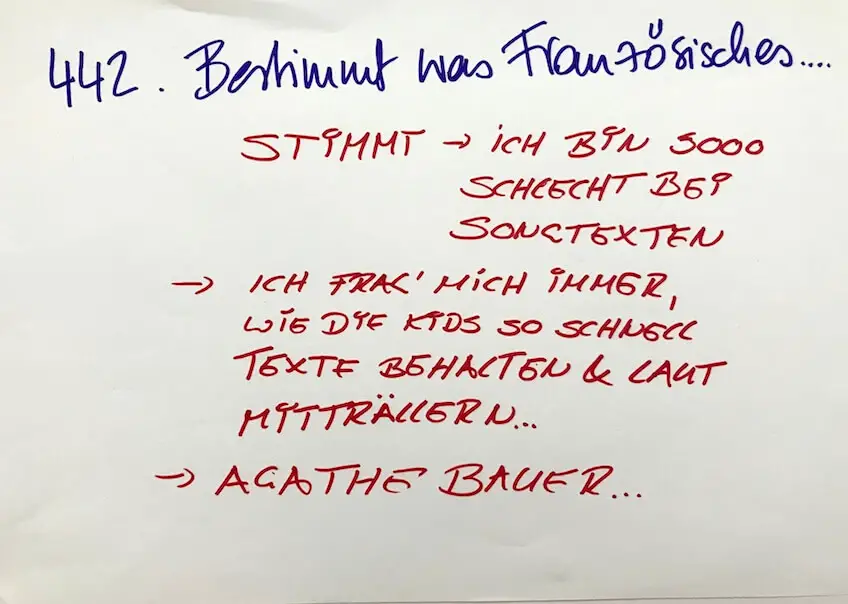 442. Bestimmt was Französisches....
STIMMT → ICH BIN SOOO
SCHLECHT BEI
SONGTEXTEN
→ ICH FRAG' MICH IMMER,
WIE DIE KIDS SO SCHNELL
TEXTE BEHALTEN & LAUT
MITTRÄLLERN...
→ AGATHE BAUER...